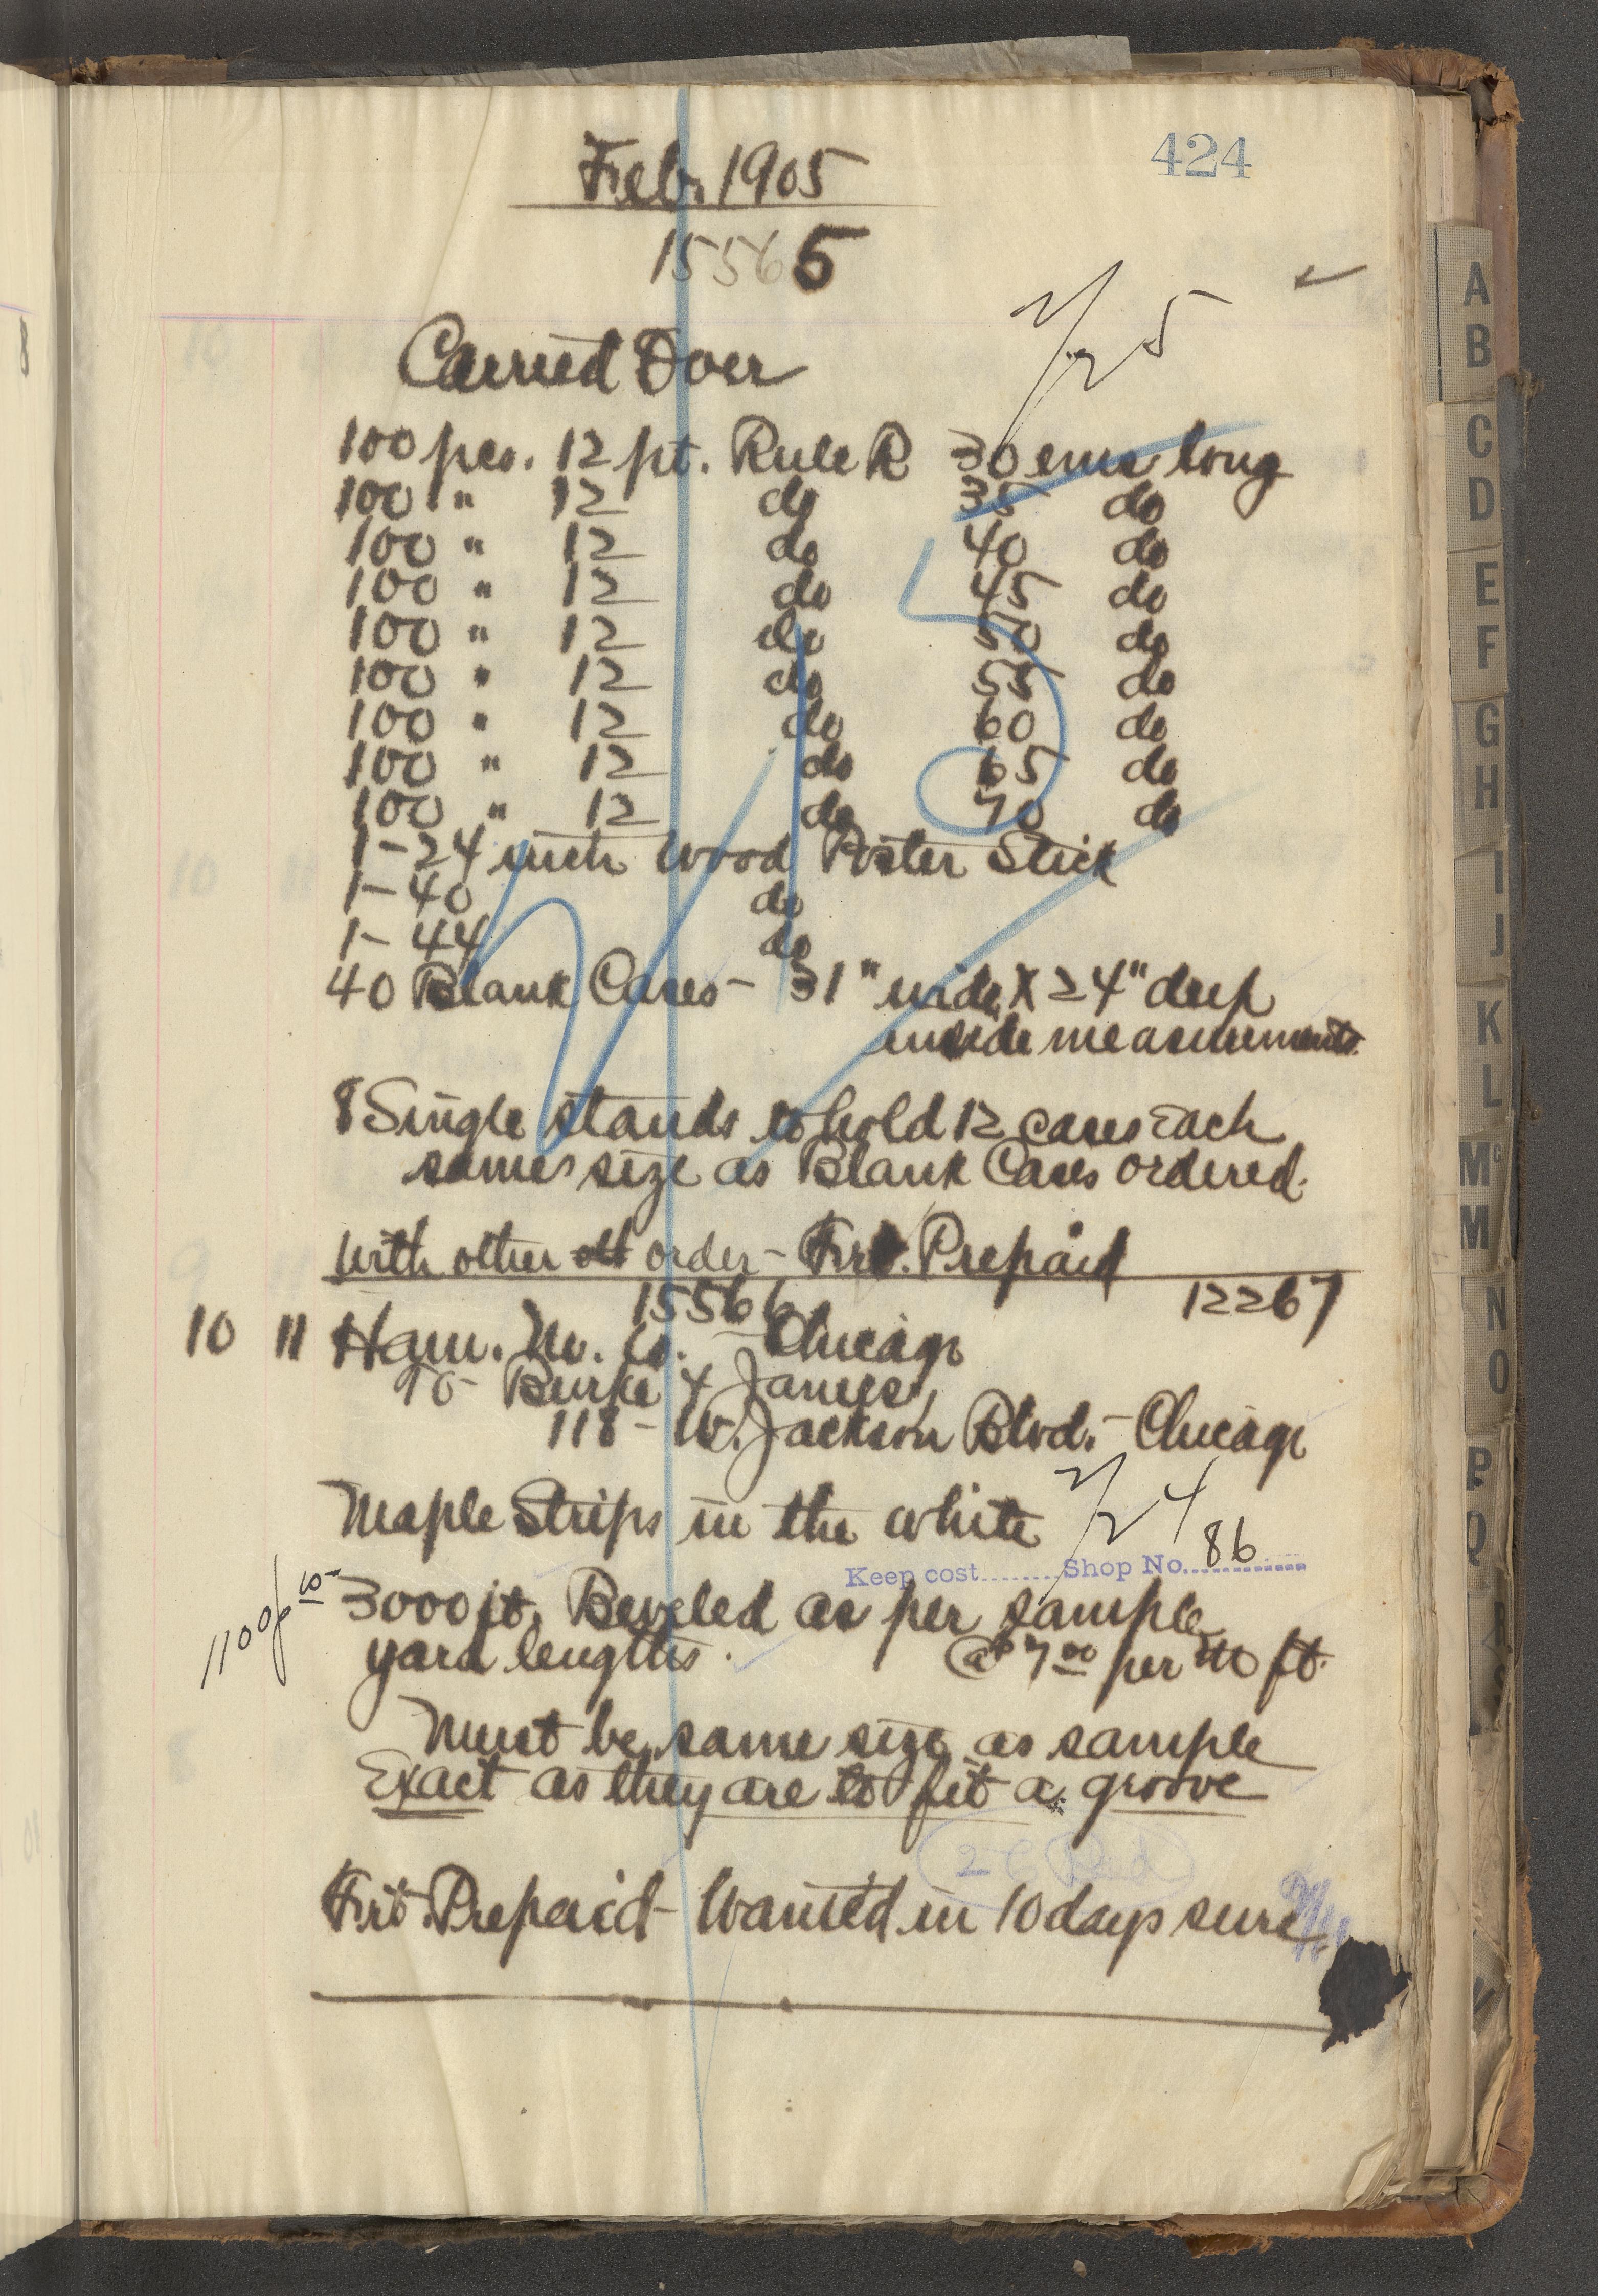 424
Feb. 1905
15565
2/25
Carried Over
100 pcs. 12 pt. Rule R 30 ems long
100 " 12 do 35 do
100 " 12 do 40 do
100 " 12 do 45 do
100 " 12 do 50 do
100 " 12 do 55 do
100 " 12 do 60 do
100 " 12 do 65 do
100 " 12 do 70 do
1-24 inch Wood Poster Stick
1-40 do
1-44 do
40 Blank Cases - 31" wide X 24" deep
inside measurements.
8 Single stands to hold 12 cases Each
same size as Blank Cases ordered.
With other order - Frt. Prepaid
15566 12267
10 11 Ham. M. Co. - Chicago
To - Burke & James,
118 - W. Jackson Blvd. - Chicago
Maple Strips in the white 2/24
Keep cost........Shop No. 86
3000 ft. Beveled as per sample
yard lengths. @ $7.00 per M ft.
Must be same size as sample
Exact as they are to fit a groove
Frt. Prepaid - Wanted in 10 days sure
A
B
C
D
E
F
G
H
I
J
K
L
Mc
M
N
O
P
Q
R
S